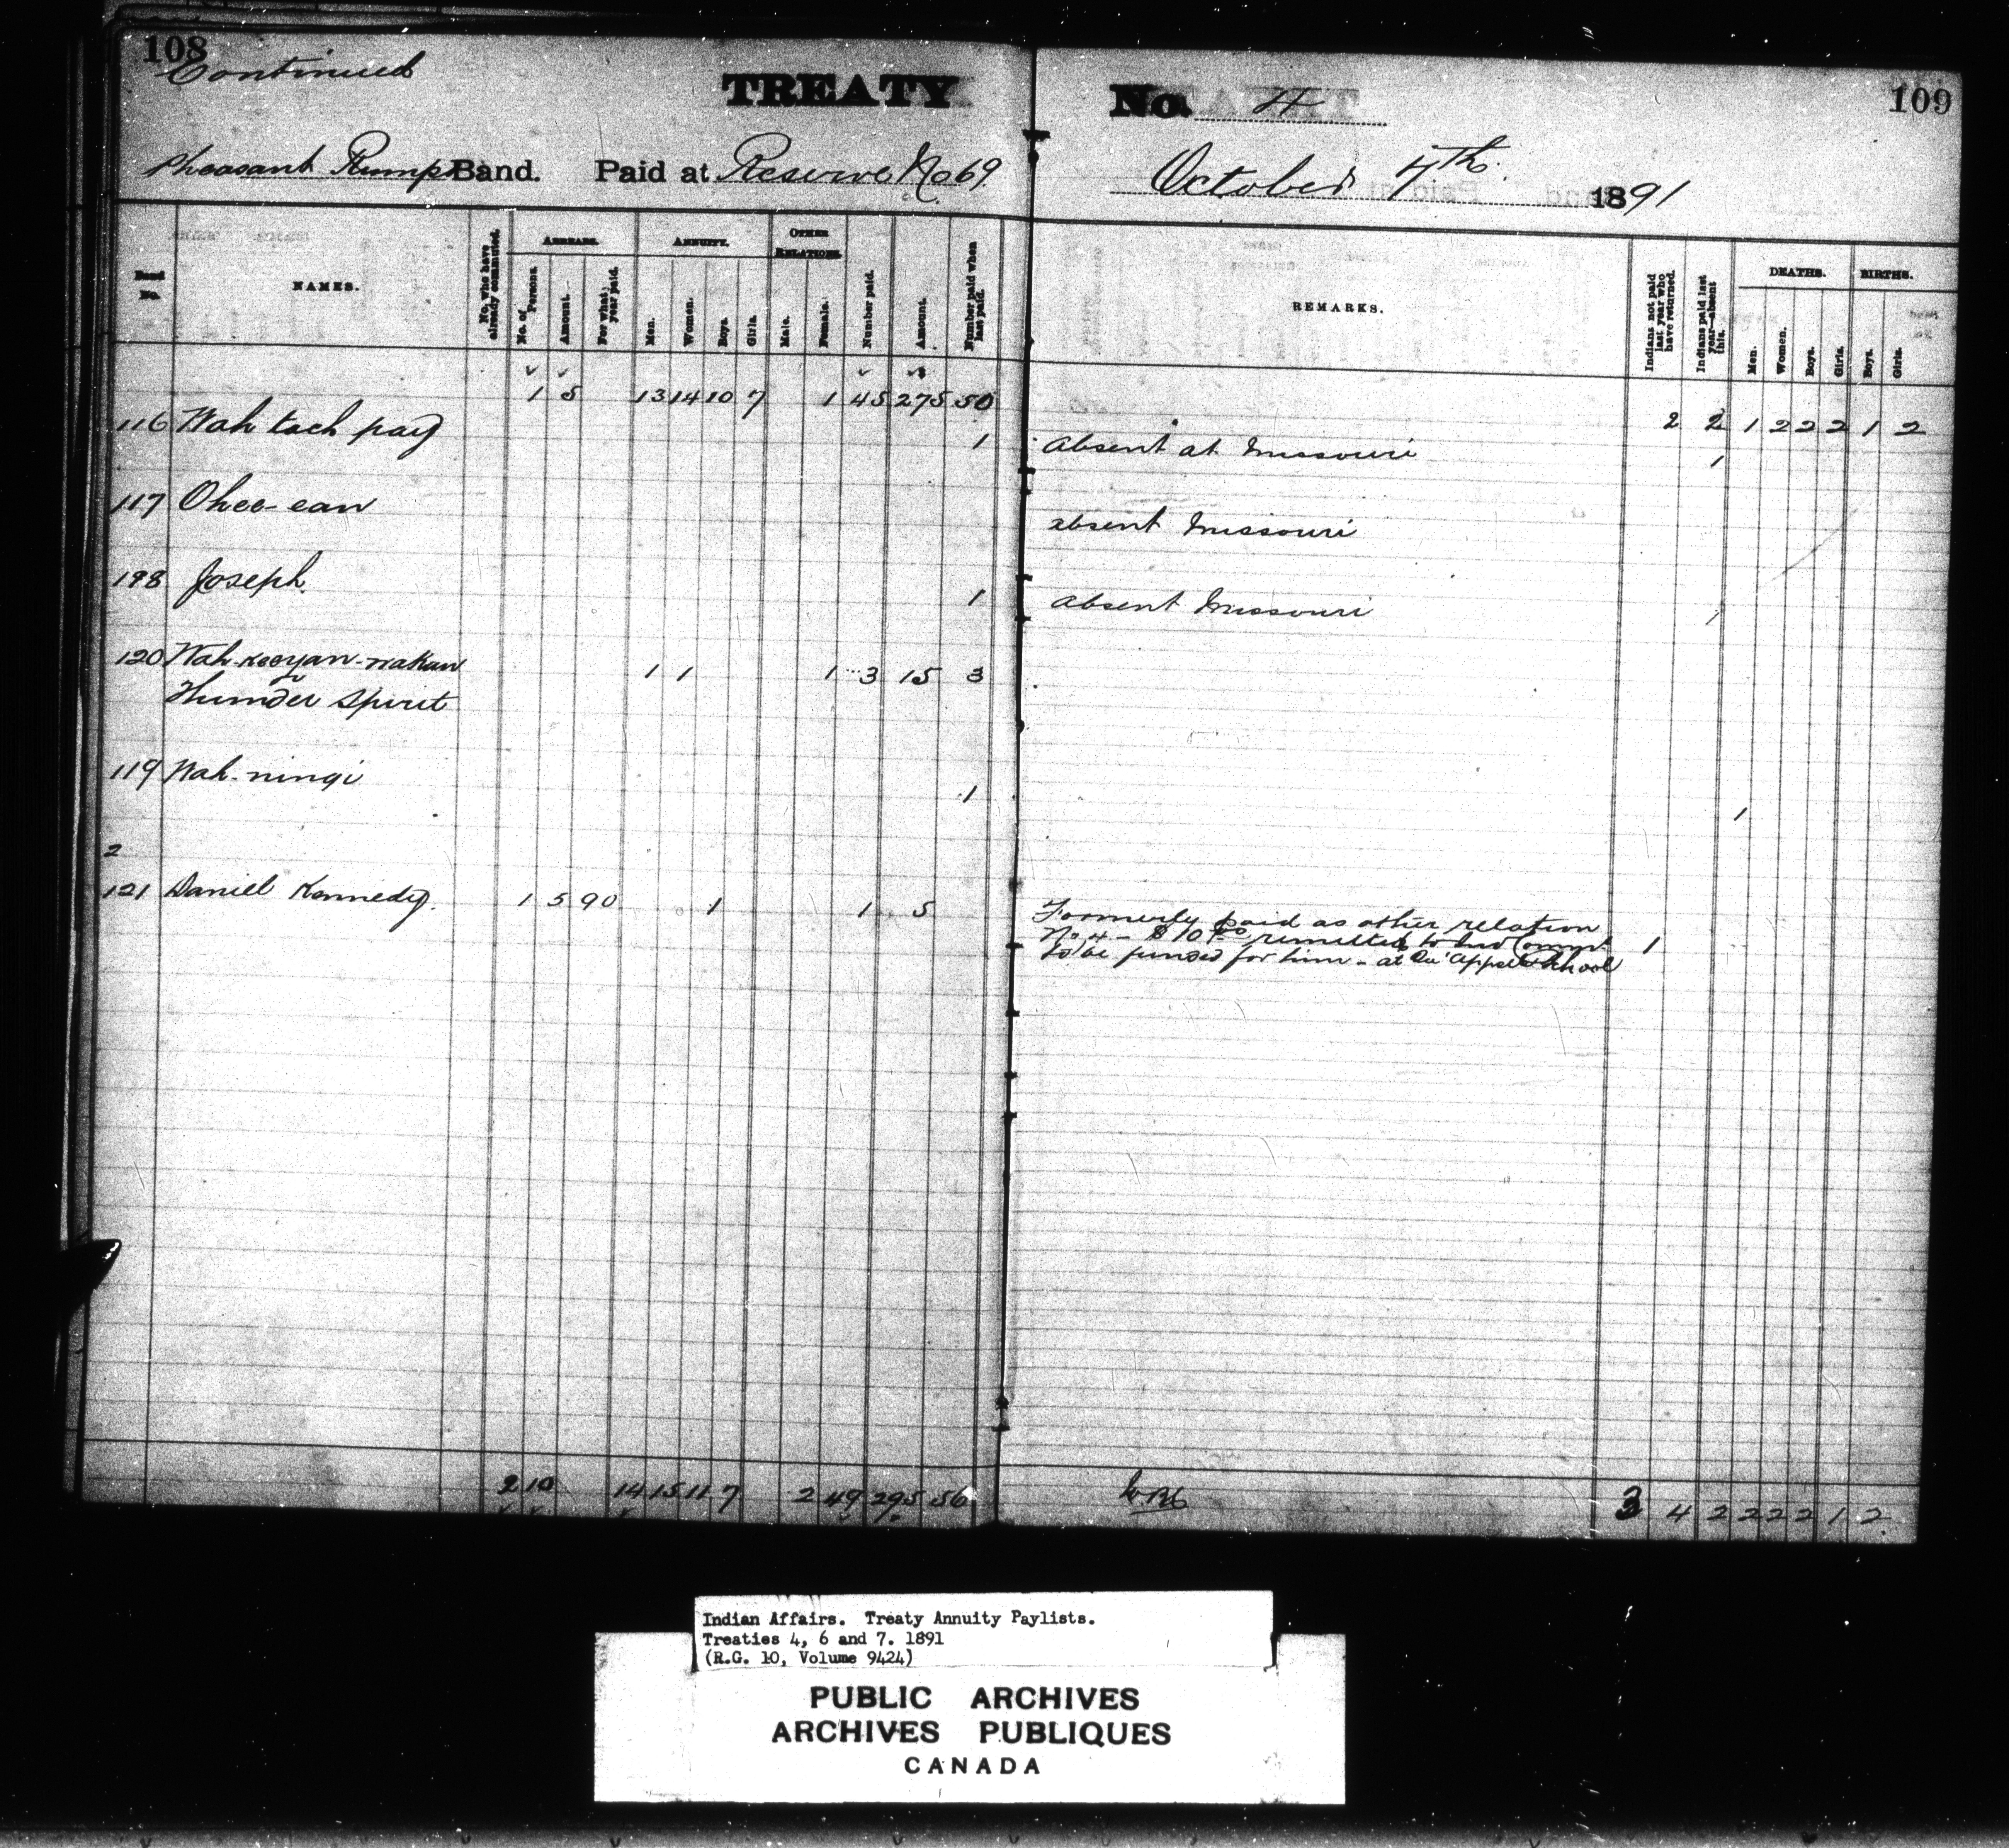 108
Continued
TREATY
No. 4
109
Pheasant Rumps Band. Paid at Reserve No 69.
October 7th. 1891
Band No.
NAMES.
No. who have already commuted.
ARREARS.
No. of Persons.
Amount.
For what year paid.
ANNUITY.
Men.
Women.
Boys.
Girls.
OTHER RELATIONS.
Male.
Female.
Number paid.
Amount.
Number paid when last paid.
REMARKS.
Indians not paid last year who have returned.
Indians paid last year—absent this.
DEATHS.
Men.
Women.
Boys.
Girls.
BIRTHS.
Boys.
Girls.
1 5 13 14 10 7 1 45 275 50 2 2 1 2 2 2 1 2
116 Wah tach pay 1 Absent at Missouri 1
117 Ohee-ean absent Missouri
198 Joseph. 1 Absent Missouri 1
120 Wah-kooyan-wakan 1 1 1 3 15 3
Thunder Spirit
119 Wah-ningi 1 1
2
121 Daniel Kennedy. 1 5 90 1 1 5 Formerly paid as other relation
No 4 - $10 00 remitted to Ind Commr 1
to be funded for him - at Qu'Appelle School
2 10 14 15 11 7 2 49 295 56 3 4 2 2 2 2 1 2
Indian Affairs. Treaty Annuity Paylists.
Treaties 4, 6 and 7. 1891
(R.G. 10, Volume 9424)
PUBLIC ARCHIVES
ARCHIVES PUBLIQUES
CANADA